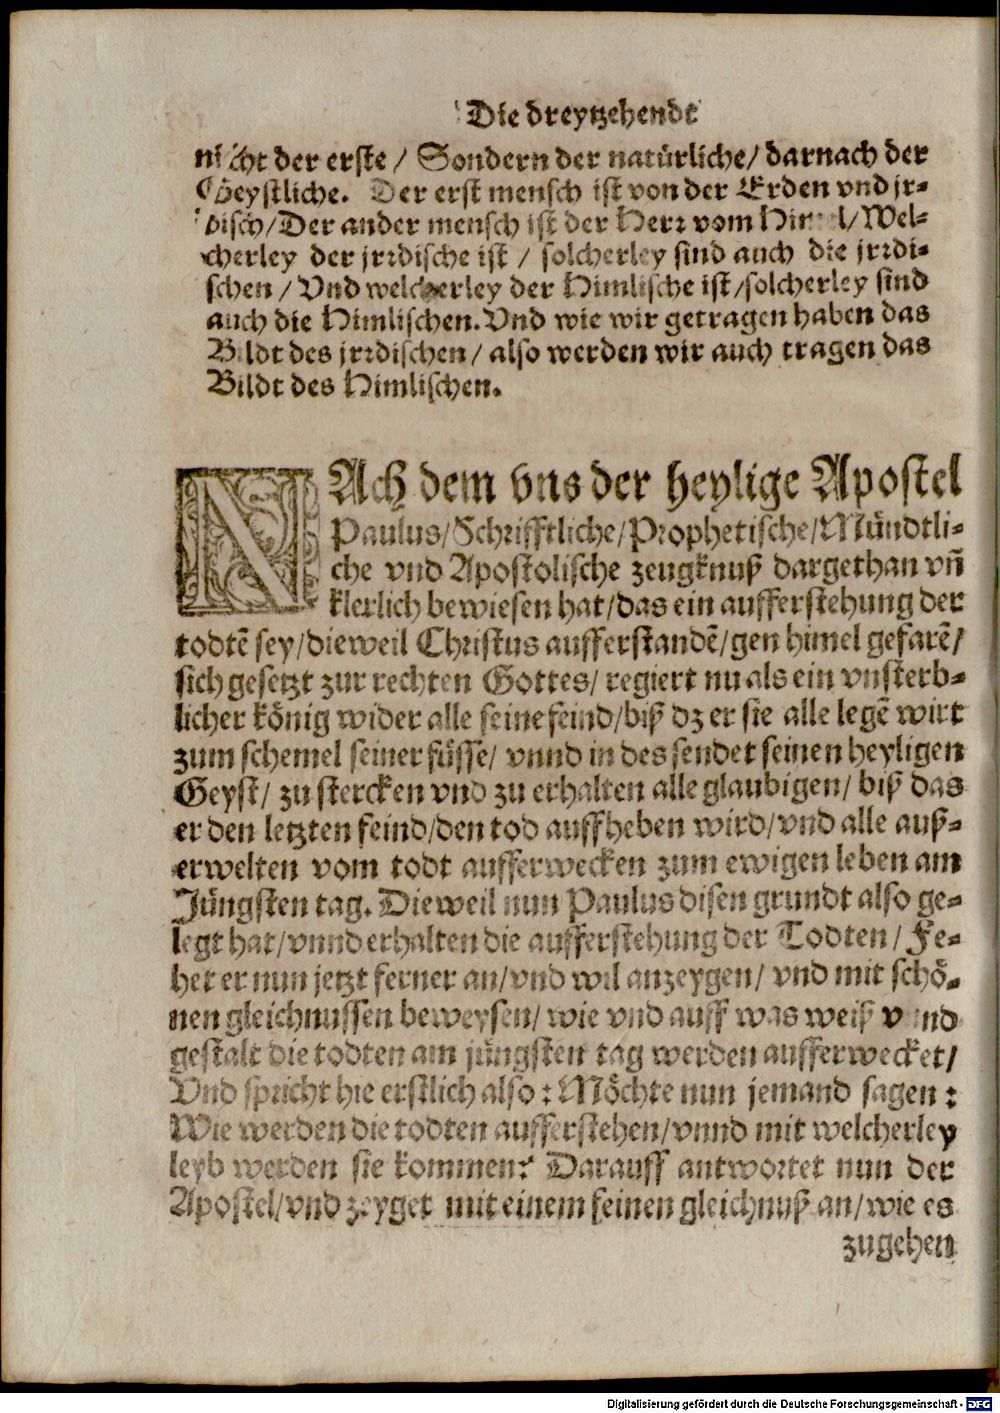 Die dreytzehende
nicht der erste / Sondern der natürliche/ darnach der
Geystliche. Der erst mensch ist von der Erden vnd jr-
disch/Der ander mensch ist der Herr vom Himel/Wel-
cherley der jrrdische ist / solcherley sind auch die jrrdi-
schen / Vnd welcherley der Himlische ist/solcherley sind
auch die Himlischen. Vnd wie wir getragen haben das
Bildt des jrrdischen / also werden wir auch tragen das
Bildt des Himlischen.
NAch dem vns der heylige Apostel
Paulus/Schrifftliche/Prophetische/Mündtli-
che vnd Apostolische zeugknuß dargethan vñ
klerlich bewiesen hat/das ein aufferstehung der
todtẽ sey/dieweil Christus aufferstandẽ/gen himel gefarẽ/
sich gesetzt zur rechten Gottes/ regiert nu als ein vnsterb-
licher könig wider alle seine feind/biß dz er sie alle legẽ wirt
zum schemel seiner füsse/ vnnd in des sendet seinen heyligen
Geyst/ zu stercken vnd zu erhalten alle glaubigen/ biß das
er den letzten feind/den tod auffheben wird/vnd alle auß-
erwelten vom todt aufferwecken zum ewigen leben am
Jüngsten tag. Dieweil nun Paulus disen grundt also ge-
legt hat/vnnd erhalten die aufferstehung der Todten / Fe-
het er nun jetzt ferner an/vnd wil anzeygen/ vnd mit schö-
nen gleichnussen beweysen/ wie vnd auff was weiß vnnd
gestalt die todten am jüngsten tag werden aufferwecket/
Vnd spricht hie erstlich also: Möchte nun jemand sagen:
Wie werden die todten aufferstehen/vnnd mit welcherley
leyb werden sie kommen? Darauff antwortet nun der
Apostel/vnd zeyget mit einem feinen gleichnuß an/wie es
zugehen
Digitalisierung gefördert durch die Deutsche Forschungsgemeinschaft - DFG